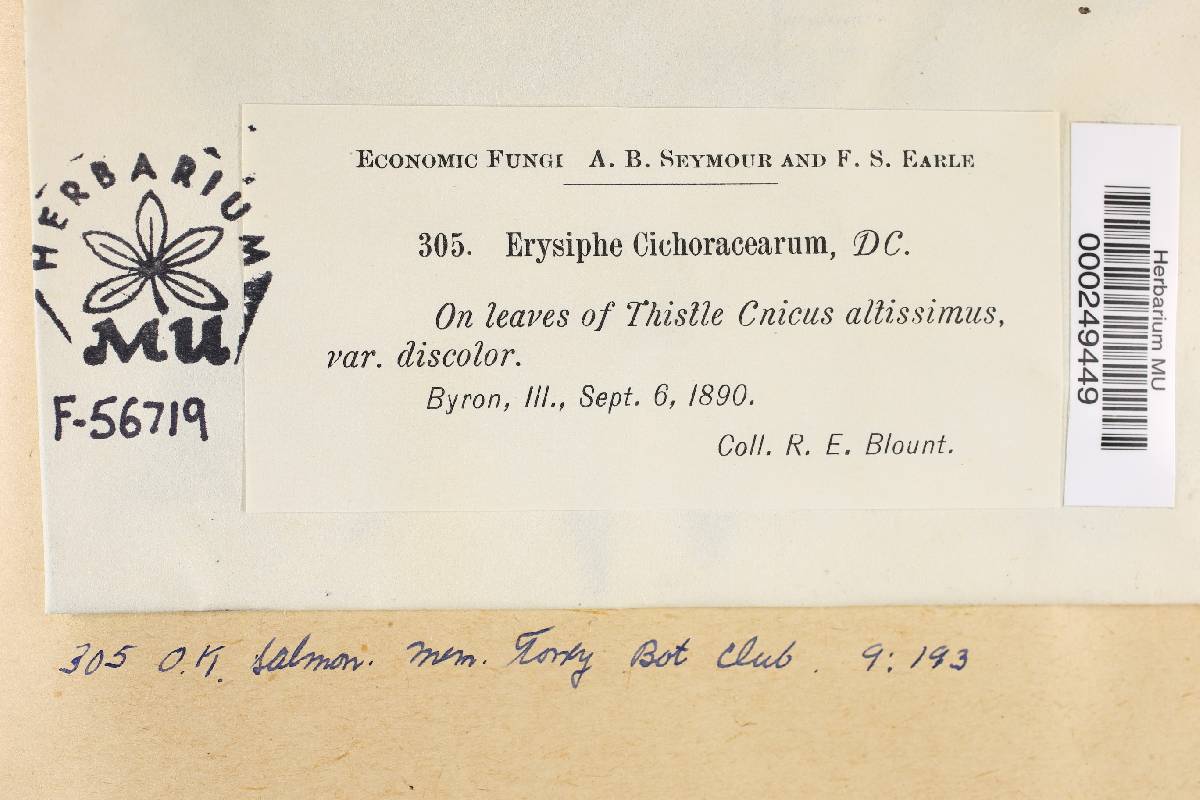 HERBARIUM
MU
F-56719
ECONOMIC FUNGI A. B. SEYMOUR AND F. S. EARLE
305. Erysiphe Cichoracearum, DC.
On leaves of Thistle Cnicus altissimus,
var. discolor.
Byron, Ill., Sept. 6, 1890.
Coll. R. E. Blount.
Herbarium MU
000249449
305 O.K. Salmon. Mem. Torrey Bot Club. 9: 193